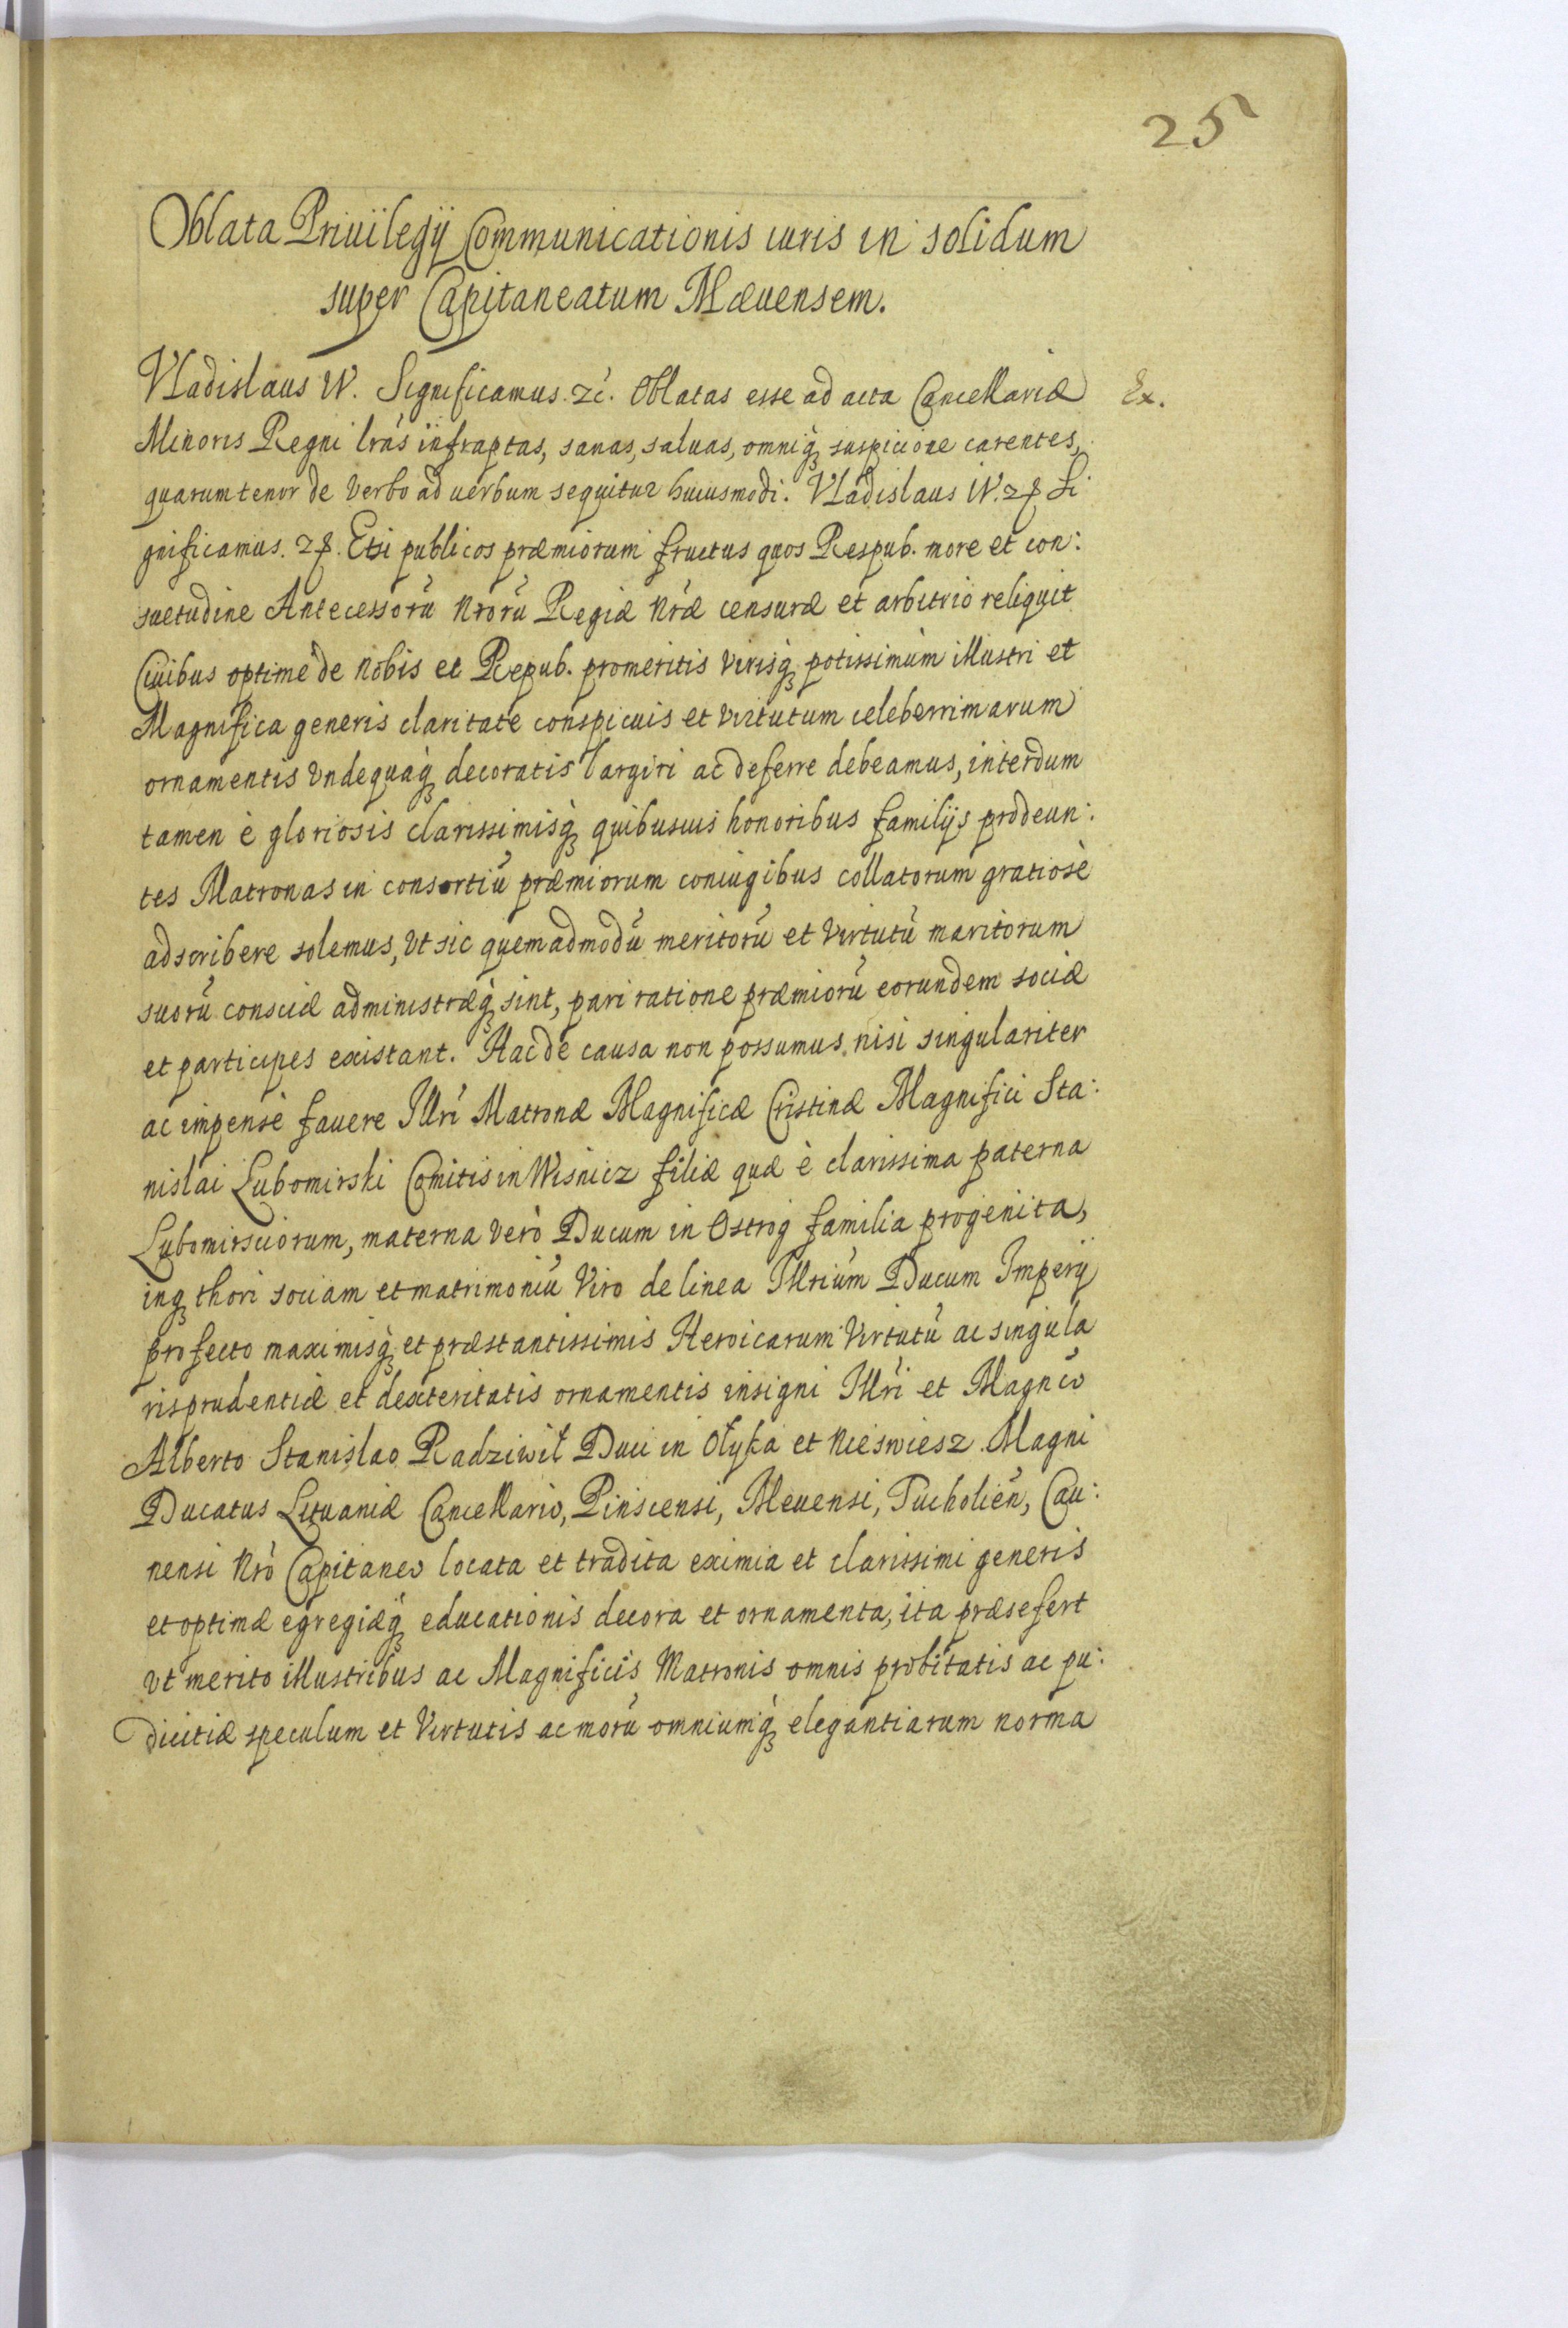 25
Oblata Priuilegij Communicationis iuris in solidum
super Capitaneatum Mæuensem.
Vladislaus IV. Significamus. &c. Oblatas esse ad acta Cancellariæ Ex.
Minoris Regni lrãs infraptas, sanas, saluas, omniq; suspicione carentes,
quarum tenor de verbo ad uerbum sequitur huiusmodi. Vladislaus IV. &c Si
gnificamus. &c. Etsi publicos præmiorum fructus quos Respub. more et con:
suetudine Antecessorũ nrorũ Regiæ nræ censuræ et arbitrio reliquit
Ciuibus optimè de nobis et Repub. promeritis virisq; potissimùm illustri et
Magnifica generis claritate conspicuis et virtutum celeberrimarum
ornamentis vndequaq; decoratis largiri ac deferre debeamus, interdum
tamen è gloriosis clarissimisq; quibusuis honoribus familijs prodeun:
tes Matronas in consortiũ præmiorum coniugibus collatorum gratiosè
adscribere solemus, vt sic quemadmodũ meritorũ et virtutũ maritorum
suorũ consciæ administræq; sint, pari ratione præmiorũ eorundem sociæ
et participes existant. Hac de causa non possumus nisi singulariter
ac impensè fauere Illri Matronæ Magnificæ Cristinæ Magnifici Sta:
nislai Lubomirski Comitis in Wisnicz filiæ quæ è clarissima paterna
Lubomirsciorum, materna verò Ducum in Ostrog familia progenita,
inq; thori sociam et matrimoniũ viro de linea Illrium Ducum Imperij
profecto maximisq; et præstantissimis Heroicarum virtutũ ac singula
ris prudentiæ et dexteritatis ornamentis insigni Illri et Magnco
Alberto Stanislao Radziwił Duci in Ołyka et Nieswiesz Magni
Ducatus Lituaniæ Cancellario, Pinscensi, Meuensi, Tucholien, Cau:
nensi nrò Capitaneo locata et tradita eximia et clarissimi generis
et optimæ egregiæq; educationis decora et ornamenta, ita præsefert
vt merito illustribus ac Magnificis Matronis omnis probitatis ac pu:
dicitiæ speculum et virtutis ac morũ omniumq; elegantiarum norma